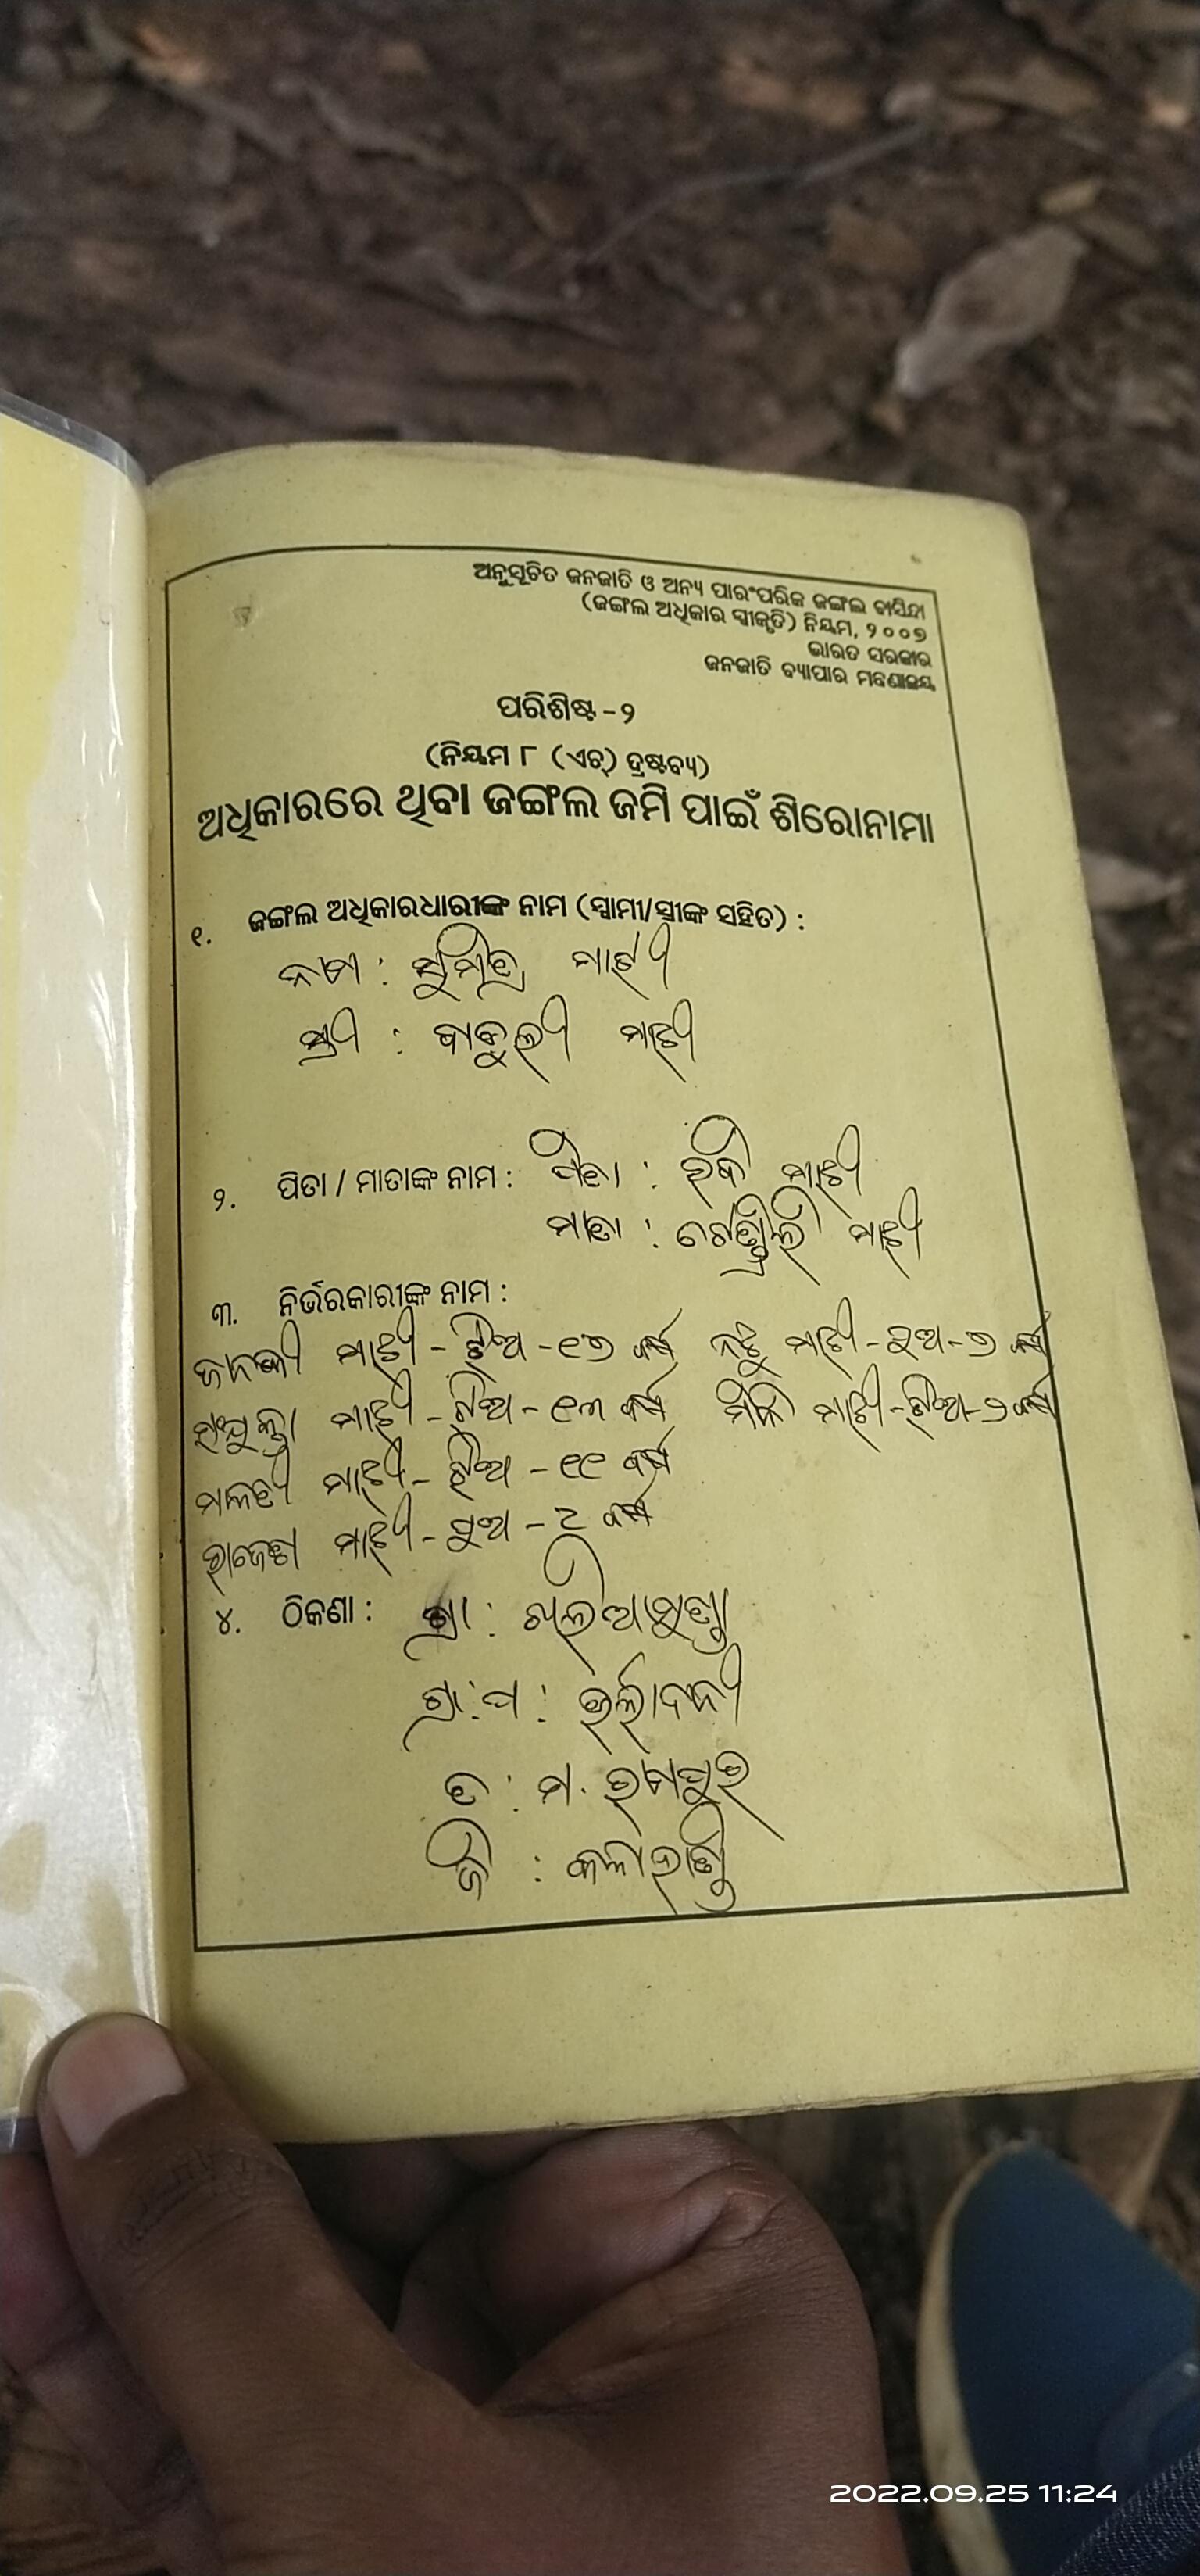 ଅନୁସୂଚିତ ଜନଜାତି ଓ ଅନ୍ୟ ପାରଂପରିକ ଜଙ୍ଗଲ ବାସିନ୍ଦା
(ଜଙ୍ଗଲ ଅଧିକାର ସ୍ୱୀକୃତି) ନିୟମ, ୨୦୦୭
ଭାରତ ସରକାର
ଜନଜାତି ବ୍ୟାପାର ମନ୍ତ୍ରଣାଳୟ
ପରିଶିଷ୍ଟ - ୨
(ନିୟମ ୮ (ଏଚ୍) ଦ୍ରଷ୍ଟବ୍ୟ)
ଅଧିକାରରେ ଥିବା ଜଙ୍ଗଲ ଜମି ପାଇଁ ଶିରୋନାମା
୧. ଜଙ୍ଗଲ ଅଧିକାରଧାରୀଙ୍କ ନାମ (ସ୍ୱାମୀ/ସ୍ତ୍ରୀଙ୍କ ସହିତ) :
ନାମ : ସୁମିତ୍ର ମାଝୀ
ସ୍ତ୍ରୀ : ବାବୁଲୀ ମାଝୀ
୨. ପିତା / ମାତାଙ୍କ ନାମ : ପିତା : ହରି ମାଝୀ
ମାତା : ମାଝୀ
୩. ନିର୍ଭରକାରୀଙ୍କ ନାମ :
ଜାନକୀ ମାଝୀ - ଝିଅ - ୧୭ ବର୍ଷ ନଟୁ ମାଝୀ - ପୁଅ - ୭ ବର୍ଷ
ସଂଯୁକ୍ତା ମାଝୀ - ଝିଅ - ୧୩ ବର୍ଷ ମାଝୀ - ଝିଅ - ବର୍ଷ
ମାଳତୀ ମାଝୀ - ଝିଅ - ୧୧ ବର୍ଷ
ରାଜେଶ ମାଝୀ - ପୁଅ - ବର୍ଷ
୪. ଠିକଣା : ଗ୍ରା :
ଗ୍ରା : ପ :
ତ : ମ. ରାମପୁର
ଜି : କଳାହାଣ୍ଡି
2022.09.25 11:24